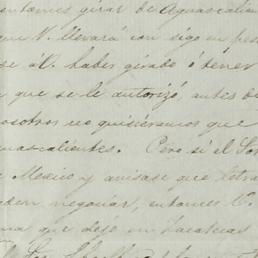 entamos girar de Aguascalien
que V. llevará con sigo en pes
se á V. haber girado ó tener
que se le autorizó, antes de
osotros no quisiéramos que
uascalientes. Pero si el Sor
Mexico y avisase que letra
eden negociar, entonces V.
ma que dejó en Zacatecas